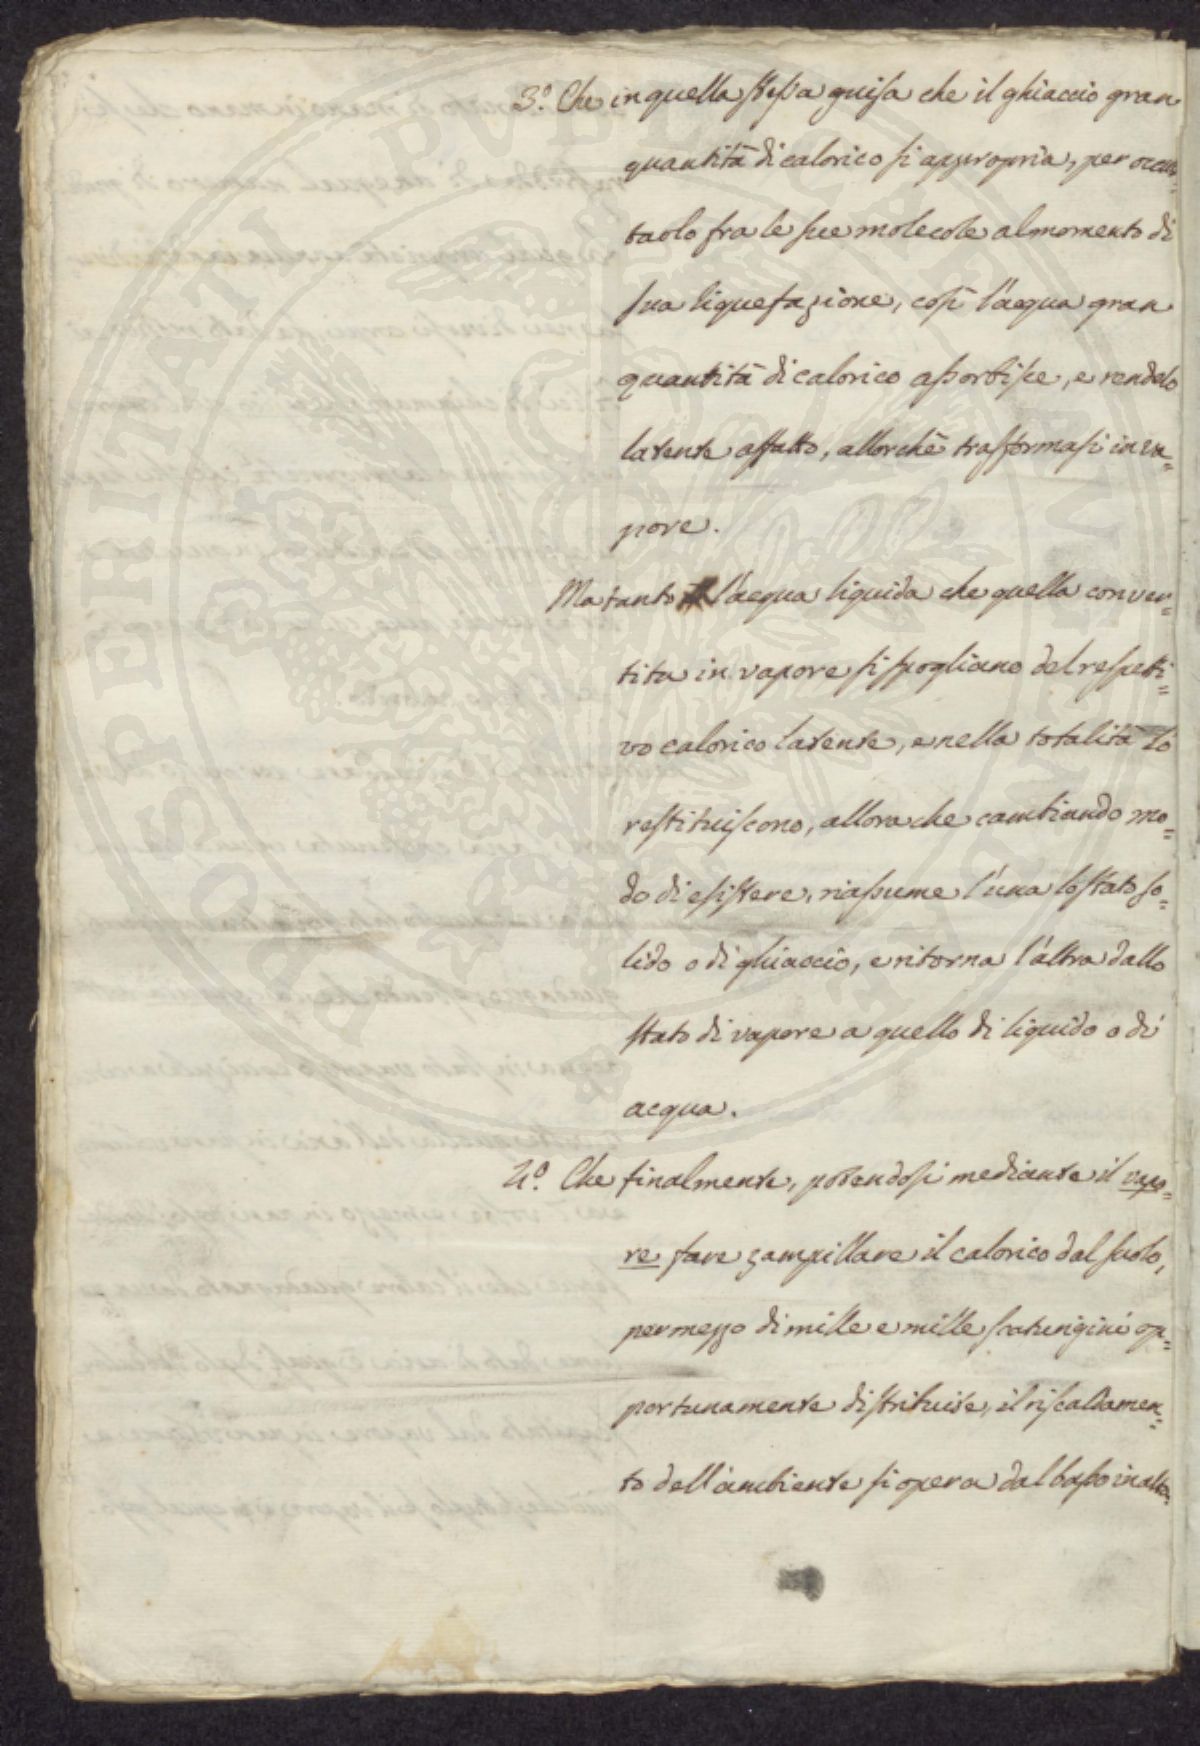 3.° Che in quella stessa guisa che il ghiaccio gran
quantità di calorico si appropria, per occul=
tarlo fra le sue molecole al momento di
sua liquefazione, così l'acqua gran
quantità di calorico assorbisce, e rendelo
latente affatto, allorchè trasformasi in va=
pore.
Ma tanto l'acqua liquida che quella conver=
tita in vapore si spogliano del respetti=
vo calorico latente, e nella totalità lo
restituiscono, allora che cambiando mo=
do di esistere, riassume l'una lo stato so=
lido o di ghiaccio, e ritorna l'altra dallo
stato di vapore a quello di liquido o di
acqua.
4.° Che finalmente, potendosi mediante il vapo=
re fare zampillare il calorico dal suolo,
per mezzo di mille e mille scaturigini op=
portunamente distribuite, il riscaldamen=
to dell'ambiente si opera dal basso in alto,
PROSPERITATI PUBLICAE AUGENDAE